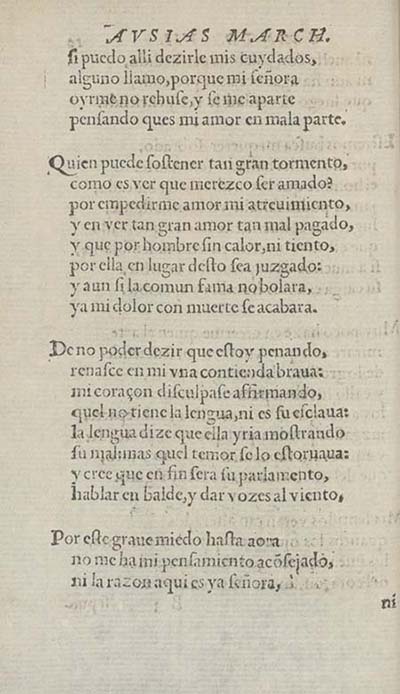 AVSIAS MARCH.
si puedo alli dezirle mis cuydados,
alguno llamo, porque mi señora
oyrme no rehuse, y se me aparte
pensando ques mi amor en mala parte.
Quien puede sostener tan gran tormento,
como es ver que merezco ser amado?
por empedirme amor mi atreuimiento,
y en ver tan gran amor tan mal pagado,
y que por hombre sin calor, ni tiento,
por ella en lugar desto sea juzgado:
y aun si la comun fama no bolara,
ya mi dolor con muerte se acabara.
De no poder dezir que estoy penando,
renasce en mi vna contienda braua:
mi coraçon disculpase affirmando,
quel no tiene la lengua, ni es su esclaua:
la lengua dize que ella yria mostrando
su mal, mas quel temor se lo estoruaua:
y cree que en fin sera su parlamento,
hablar en balde, y dar vozes al viento,
Por este graue miedo hasta aora
no me ha mi pensamiento acõsejado,
ni la razon aqui es ya señora,
ni